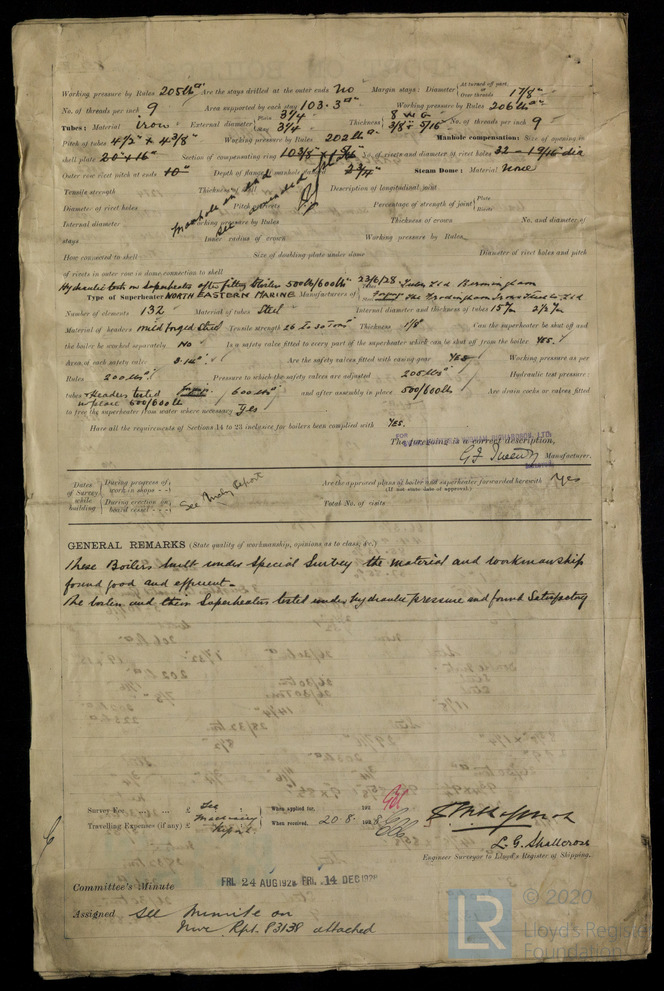 Working pressure by Rules 205 lbs Are the stays drilled at the outer ends No Margin stays: Diameter { At turned off part, Over threads 1 7/8"
No. of threads per inch 9 Area supported by each stay 103.3 Working pressure by Rules 206 lbs
Tubes: Material iron External diameter { Plain 3 1/4 Stay 3 1/4 Thickness { 8 WG 3/8 + 5/16 No. of threads per inch 9
Pitch of tubes 4 1/2" x 4 3/8" Working pressure by Rules 202 lbs Manhole compensation: Size of opening in
shell plate 20" x 16" Section of compensating ring No. of rivets and diameter of rivet holes 32 - 1 9/16 dia
Outer row rivet pitch at ends 10" Depth of flange if manhole flanged 2 3/4" Steam Dome: Material None
Tensile strength Thickness of shell Description of longitudinal joint
Diameter of rivet holes Pitch of rivets Percentage of strength of joint { Plate Rivets
Internal diameter Working pressure by Rules Thickness of crown No. and diameter of
stays Inner radius of crown Working pressure by Rules
Manhole on end
see amended
How connected to shell Size of doubling plate under dome Diameter of rivet holes and pitch
of rivets in outer row in dome connection to shell
Hydraulic tests on Superheater after fitting 500lb/600lb 23/6/28 Tubes Ltd Birmingham
Type of Superheater NORTH EASTERN MARINE Manufacturers of
Number of elements 132 Material of tubes Steel Internal diameter and thickness of tubes 15 7/m 2 1/2 7/m
Material of headers mild forged Steel Tensile strength 26 to 30 Tons Thickness 1/8" Can the superheater be shut off and
the boiler be worked separately No Is a safety valve fitted to every part of the superheater which can be shut off from the boiler Yes.
Area of each safety valve 3.14" Are the safety valves fitted with easing gear Yes Working pressure as per
Rules 200 lbs Pressure to which the safety valves are adjusted 205 lbs Hydraulic test pressure:
tubes + Headers tested 600 lbs and after assembly in place 500/600 lb Are drain cocks or valves fitted
in place 500/600 lb
to free the superheater from water where necessary Yes
Have all the requirements of Sections 14 to 23 inclusive for boilers been complied with YES.
The foregoing is a correct description,
Manufacturer.
Dates of Survey while building { During progress of work in shops - - During erection on board vessel - - - See Mchy Report Are the approved plans of boiler and superheater forwarded herewith Yes
(If not state date of approval.)
Total No. of visits
GENERAL REMARKS (State quality of workmanship, opinions as to class, &c.)
These Boilers built under Special Survey the material and workmanship
found good and efficient.
The boilers and their Superheaters tested under hydraulic pressure and found Satisfactory
Survey Fee ... ... £ See When applied for, 192
Travelling Expenses (if any) £ Machinery Report. When received, 20.8.1928
L. G. Shallcross
Engineer Surveyor to Lloyd's Register of Shipping.
Committee's Minute FRI. 24 AUG 1928 FRI. 14 DEC 1928
Assigned See Minute on
Nwc Rpt. 83138 attached
© 2020
LR Lloyd's Register
Foundation